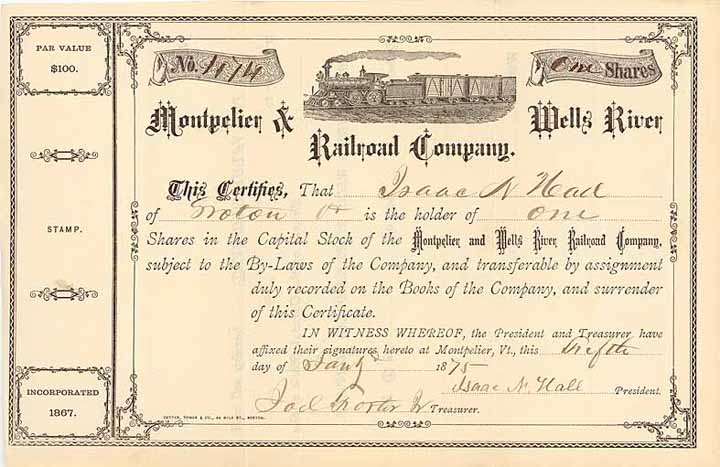 PAR VALUE
$100.
STAMP.
INCORPORATED
1867.
No.
One Shares
Montpelier & Wells River
Railroad Company.
This Certifies, That Isaac N Hall
of Groton Vt is the holder of One
Shares in the Capital Stock of the Montpelier and Wells River Railroad Company,
subject to the By-Laws of the Company, and transferable by assignment
duly recorded on the Books of the Company, and surrender
of this Certificate.
IN WITNESS WHEREOF, the President and Treasurer have
affixed their signatures hereto at Montpelier, Vt., this
day of Jany 1875
Isaac N. Hall President.
Joel Foster Jr Treasurer.
CUTTER, TOWER & CO., MILK ST., BOSTON.